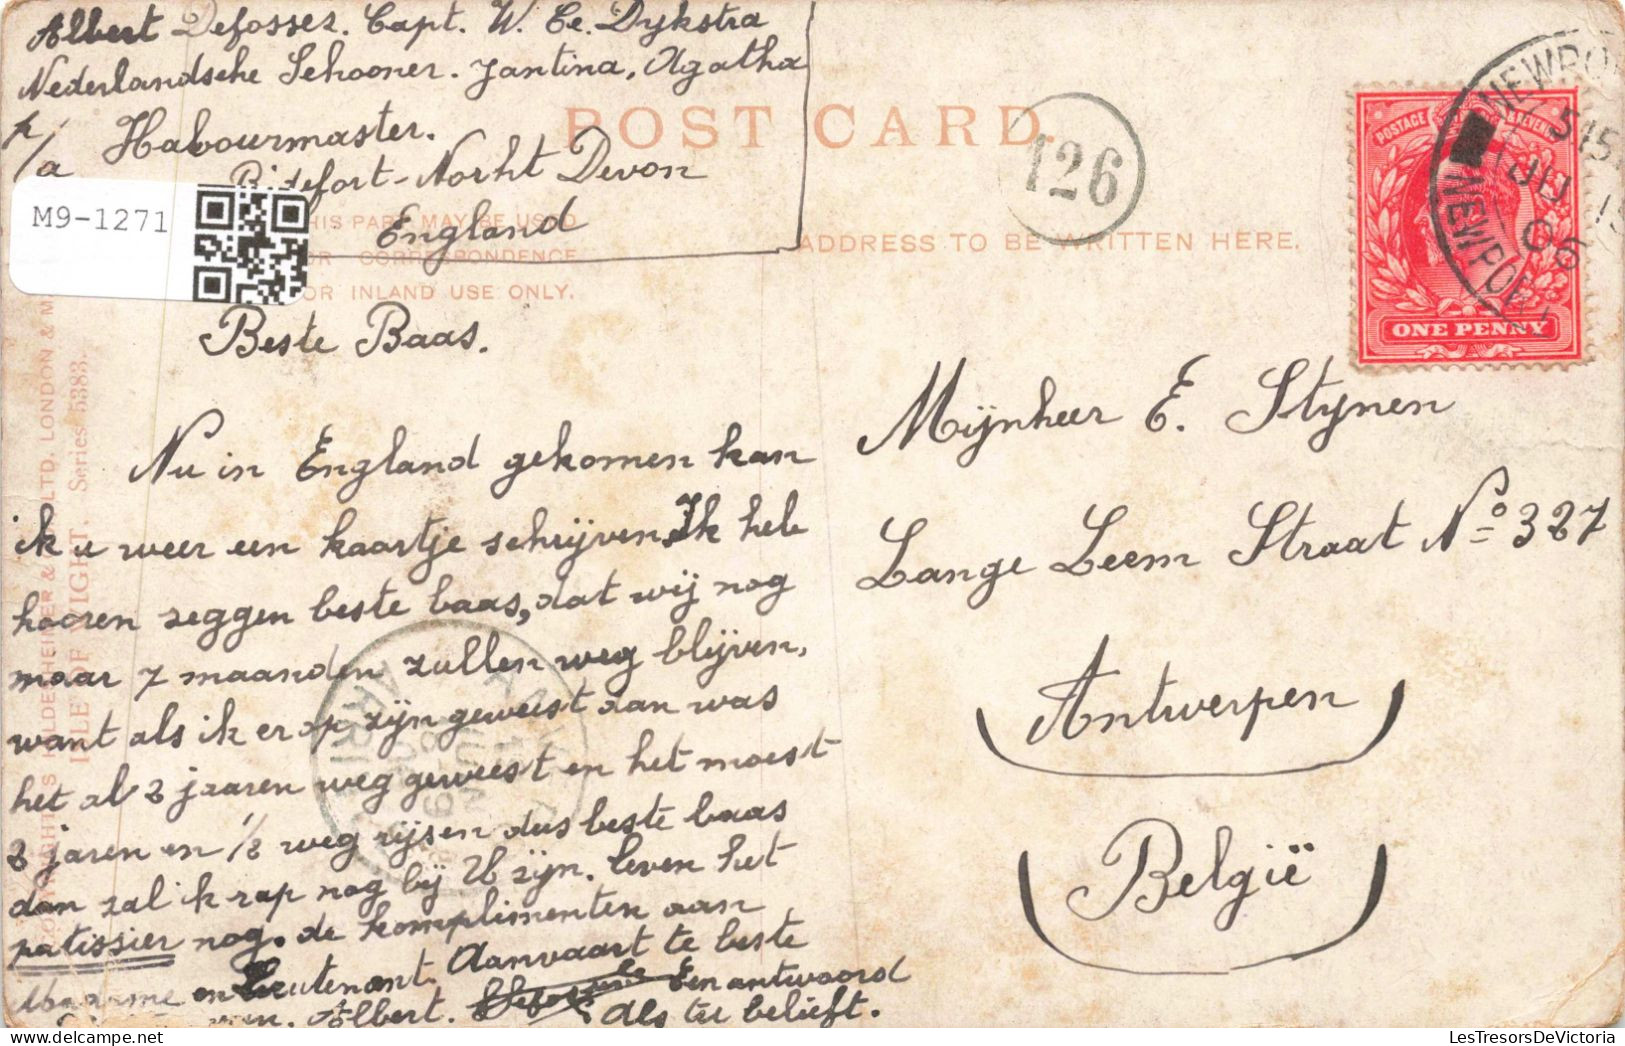 Albert Defossez. Capt. W. Ce. Dykstra
Nederlandsche Schooner. Jantina, Agatha
p/a Habourmaster.
Bidefort-Norht Devon
England
POST CARD.
126
M9-1271
THIS PART MAY BE USED
FOR CORRESPONDENCE
FOR INLAND USE ONLY.
ADDRESS TO BE WRITTEN HERE.
POSTAGE & REVENUE
ONE PENNY
NEWPORT
515
JU 15
05
NEWPORT
Beste Baas.
Nu in England gekomen kan
ik u weer een kaartje schrijven. Ik heb
hooren zeggen beste baas, dat wij nog
maar 7 maanden zullen weg blijven,
want als ik er op zijn geweest dan was
het al 2 jaaren weg geweest en het moest
2 jaren en 1/2 weg rijsen dus beste baas
dan zal ik rap nog bij U zijn. leven het
patissier nog. de komplimenten aan
Madame en Leutenant. Aanvaart te beste
Albert. Een antwoord
Als ter belieft.
Mijnheer E. Stynen
Lange Leem Straat No 327
Antwerpen
België
ISLE OF WIGHT. Series 5383.